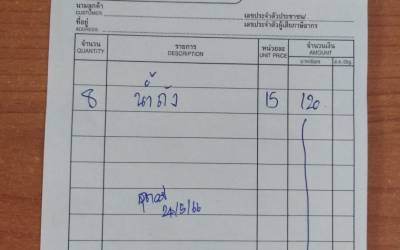 นามลูกค้า
CUSTOMER
เลขประจำตัวประชาชน/
ที่อยู่
เลขประจำตัวผู้เสียภาษีอากร
ADDRESS
จำนวน รายการ หน่วยละ จำนวนเงิน
QUANTITY DESCRIPTION UNIT PRICE AMOUNT
8 น้ำถัง 15 120
24/5/66